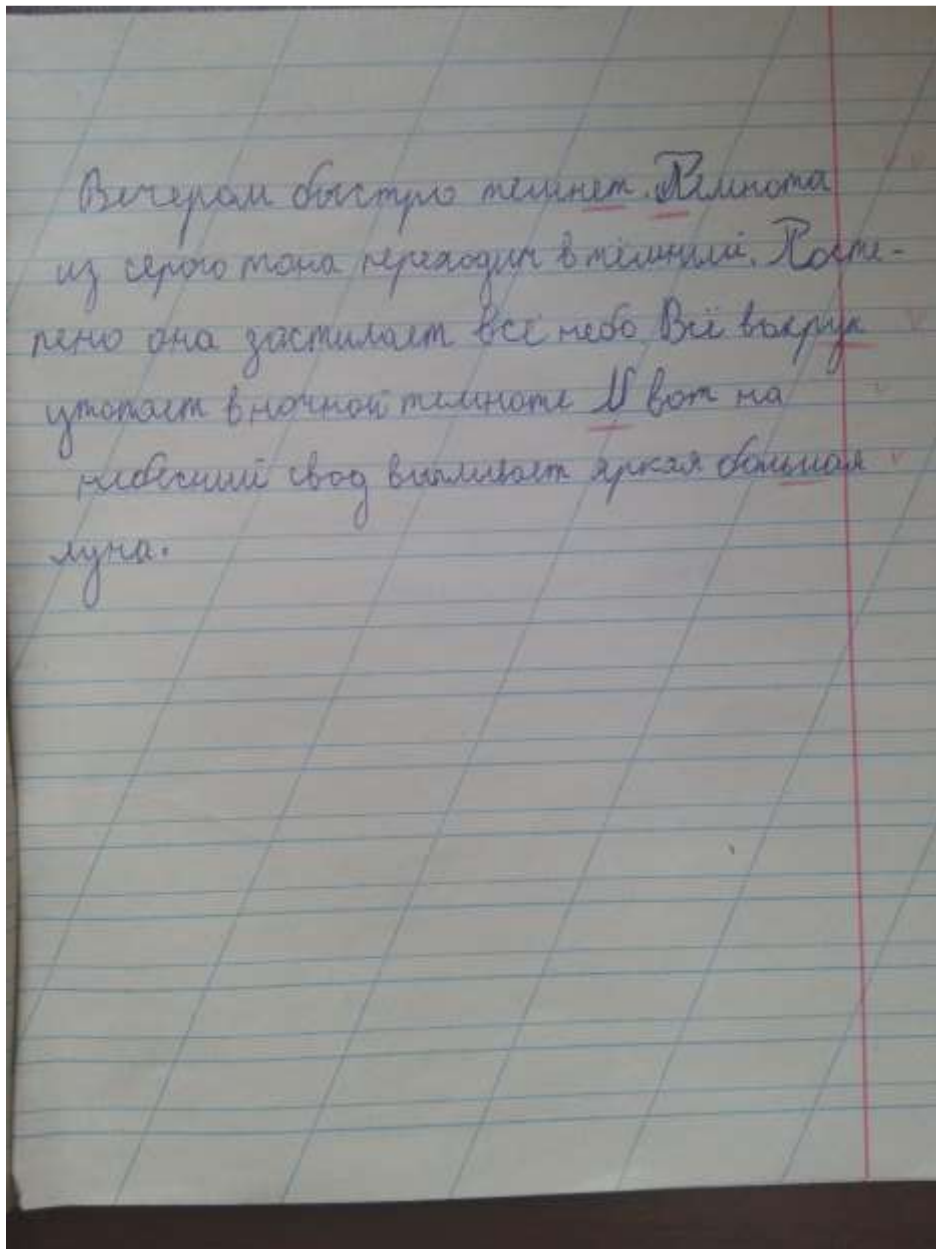 Вечером быстро темнет. Темнота
из серого тона переходит в тёмний. Посте-
пено она застилает всё небо Всё вокрук
утопает в ночной темноте И вот на
небесний свод выпливает яркая большая
луна.